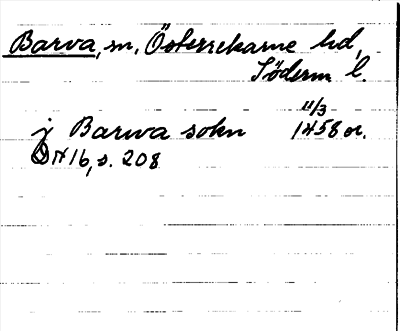 Barva, sn, Österrekarne hd,
Söderm l.
11/3
j Barwa sokn 1458 or.
D N 16, s. 208